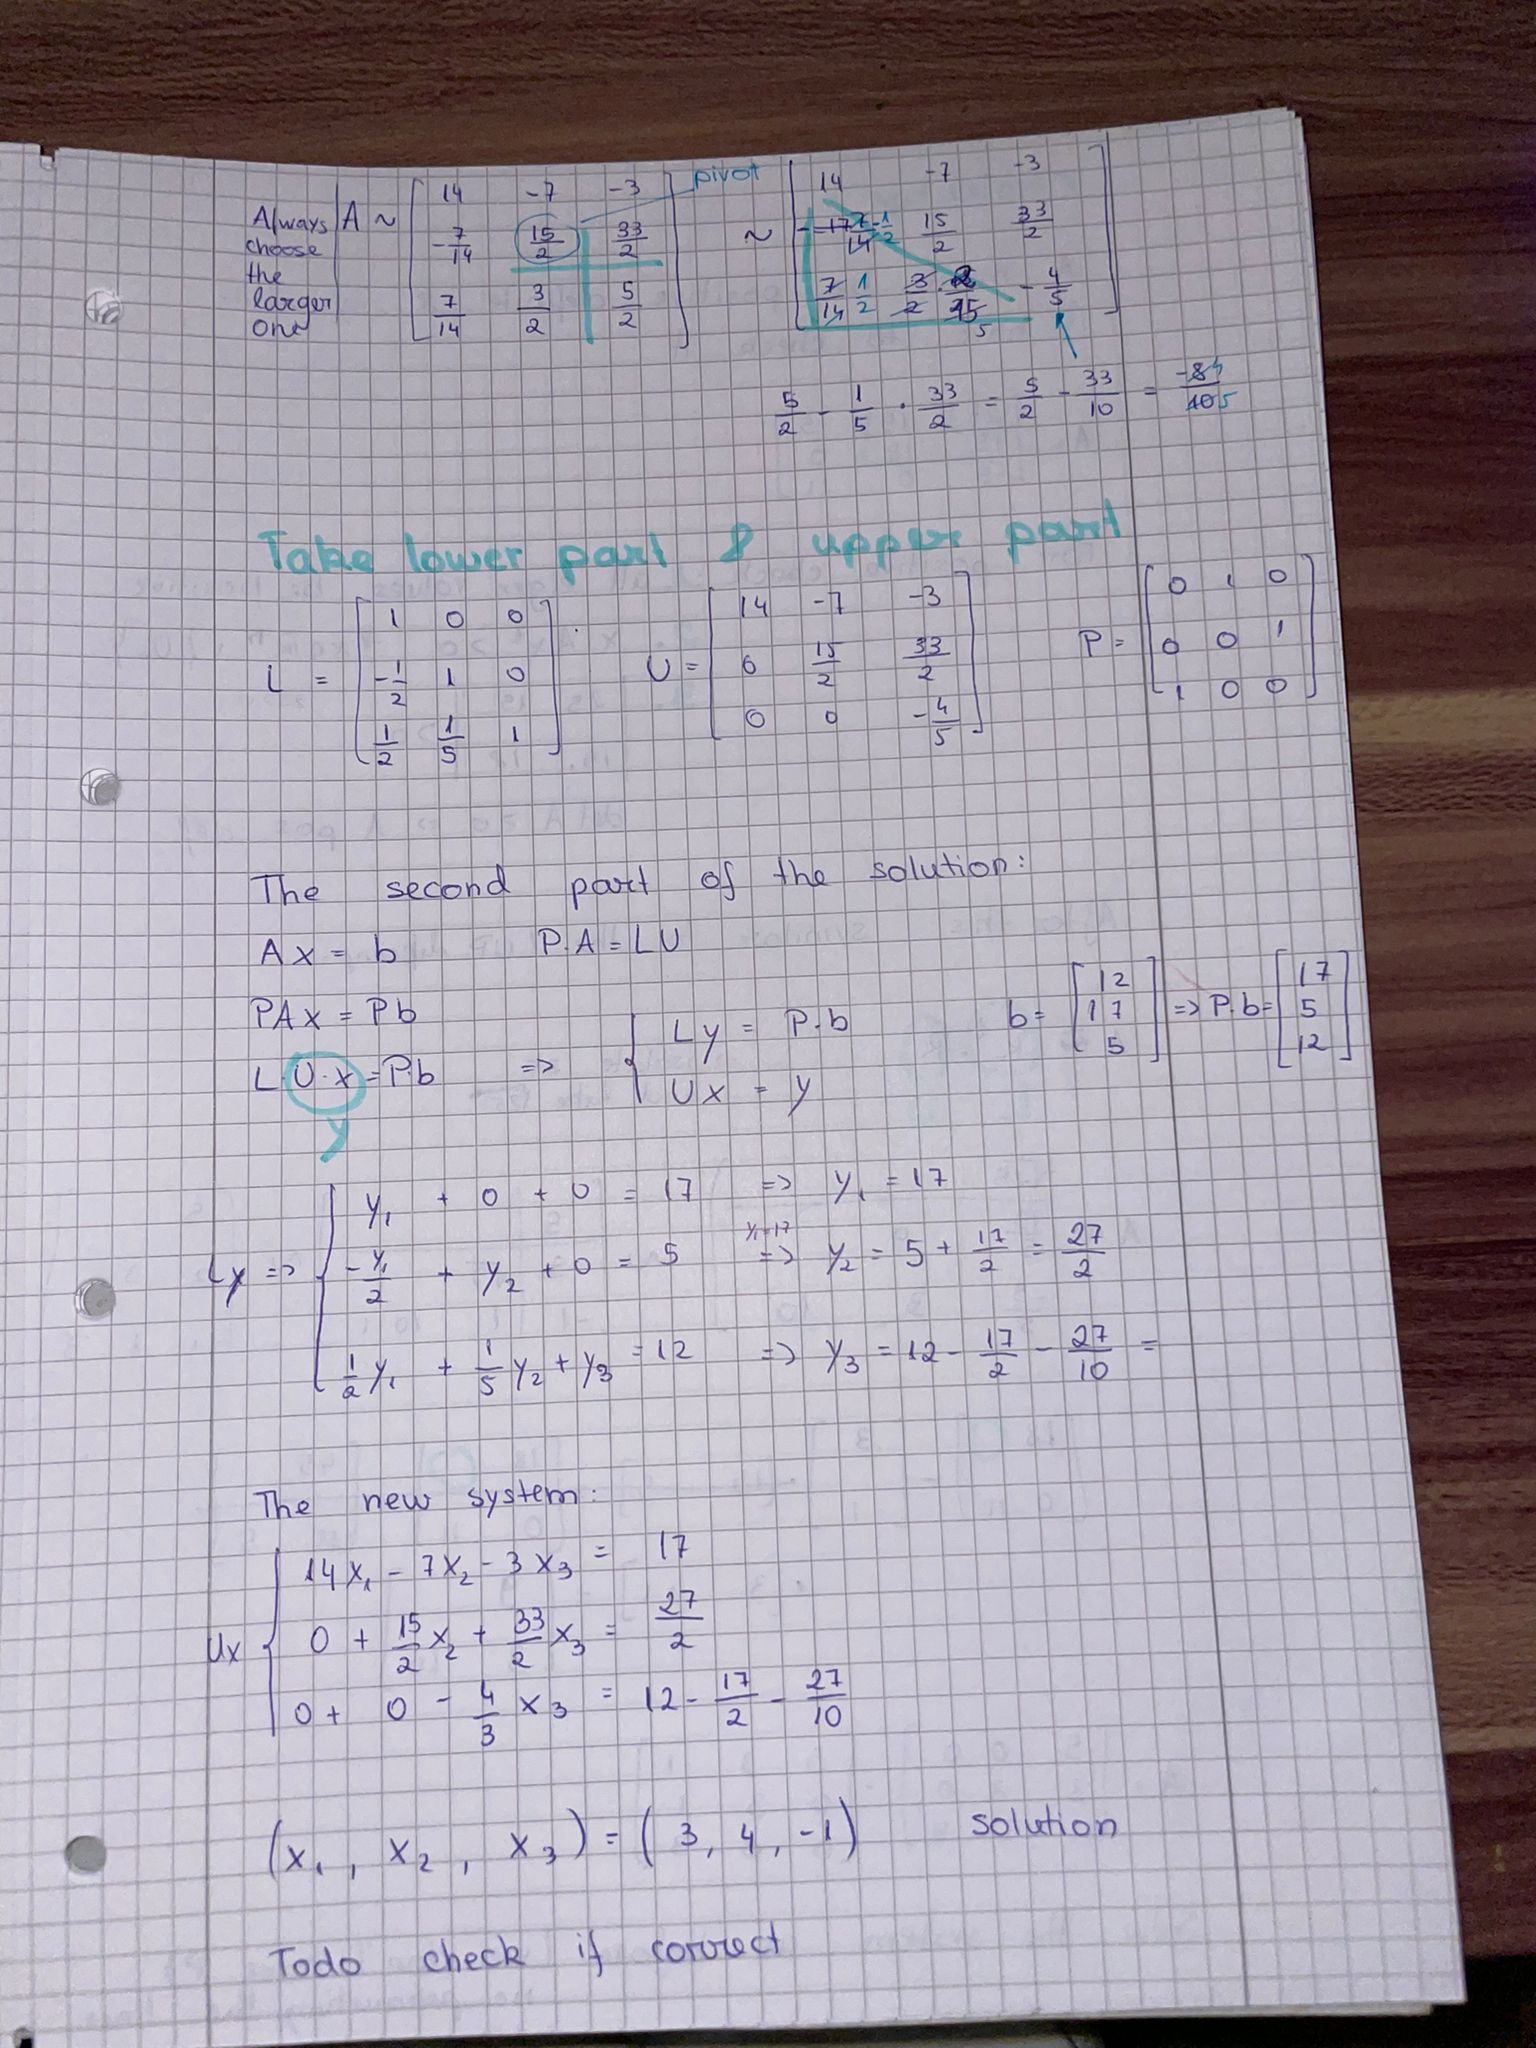 Always choose the larger one | A ~ [ 14 -7 -3 ; -7/14 15/2 33/2 ; 7/14 3/2 5/2 ] pivot ~ [ 14 -7 -3 ; -1/2 15/2 33/2 ; 7/14 1/2 3/2 · 2/15 5 -4/5 ]
5/2 - 1/5 · 33/2 = 5/2 - 33/10 = -84/105
Take lower part & upper part
L = [ 1 0 0 ; -1/2 1 0 ; 1/2 1/5 1 ] . U = [ 14 -7 -3 ; 0 15/2 33/2 ; 0 0 -4/5 ] P = [ 0 1 0 ; 0 0 1 ; 1 0 0 ]
The second part of the solution:
Ax = b P.A = LU
PAx = Pb
L·U·x = P·b => { Ly = P.b ; Ux = y b = [ 12 ; 17 ; 5 ] => P.b = [ 17 ; 5 ; 12 ]
y
Ly => { y₁ + 0 + 0 = 17 => y₁ = 17
-y₁/2 + y₂ + 0 = 5 y₁=17 => y₂ = 5 + 17/2 = 27/2
1/2 y₁ + 1/5 y₂ + y₃ = 12 => y₃ = 12 - 17/2 - 27/10 =
The new system:
Ux { 14x₁ - 7x₂ - 3x₃ = 17
0 + 15/2 x₂ + 33/2 x₃ = 27/2
0 + 0 - 4/3 x₃ = 12 - 17/2 - 27/10
(x₁, x₂, x₃) = (3, 4, -1) solution
Todo check if correct